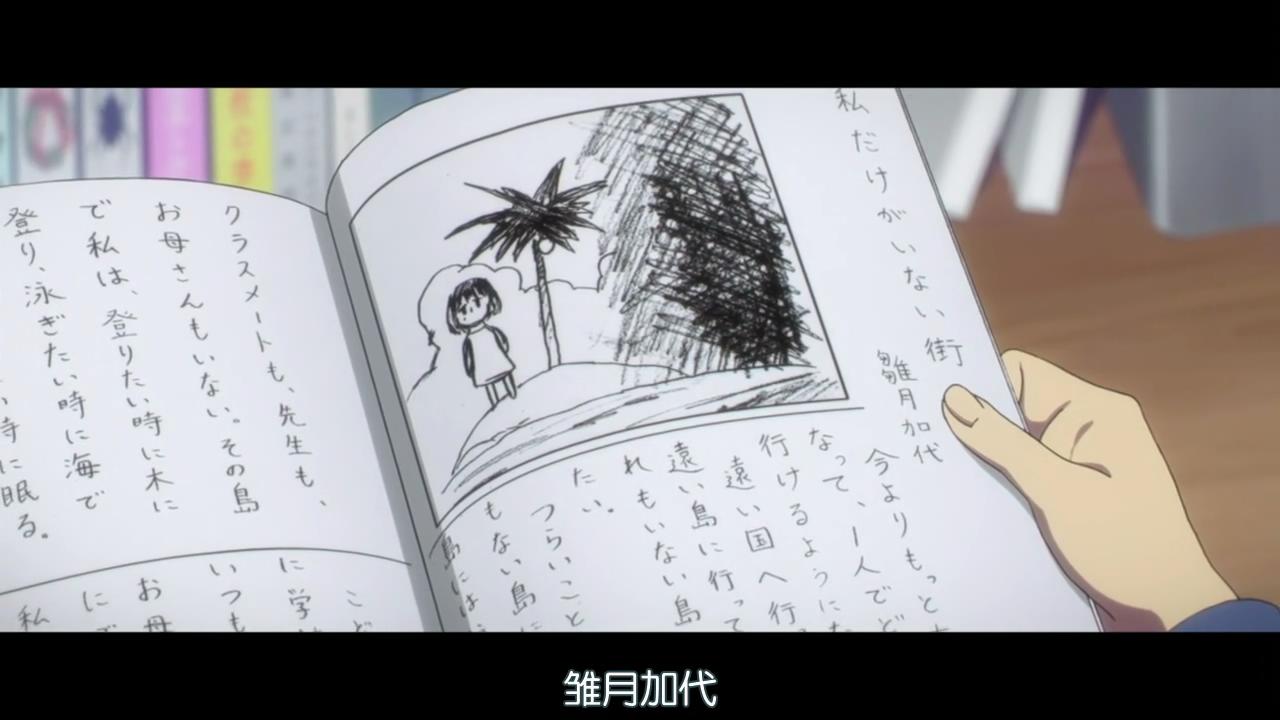 私だけがいない街
雛月加代
今よりもっと
なって、1人でど
行けるように
遠い国へ行
遠い島に行って
れもいない島
たい。
つらいこと
もない島に
島には
クラスメートも、先生も、
お母さんもいない。その島
で私は、登りたい時に木に
登り、泳ぎたい時に海で
い時に眠る。
こど
に学
いつも
お母
に
私
雛月加代